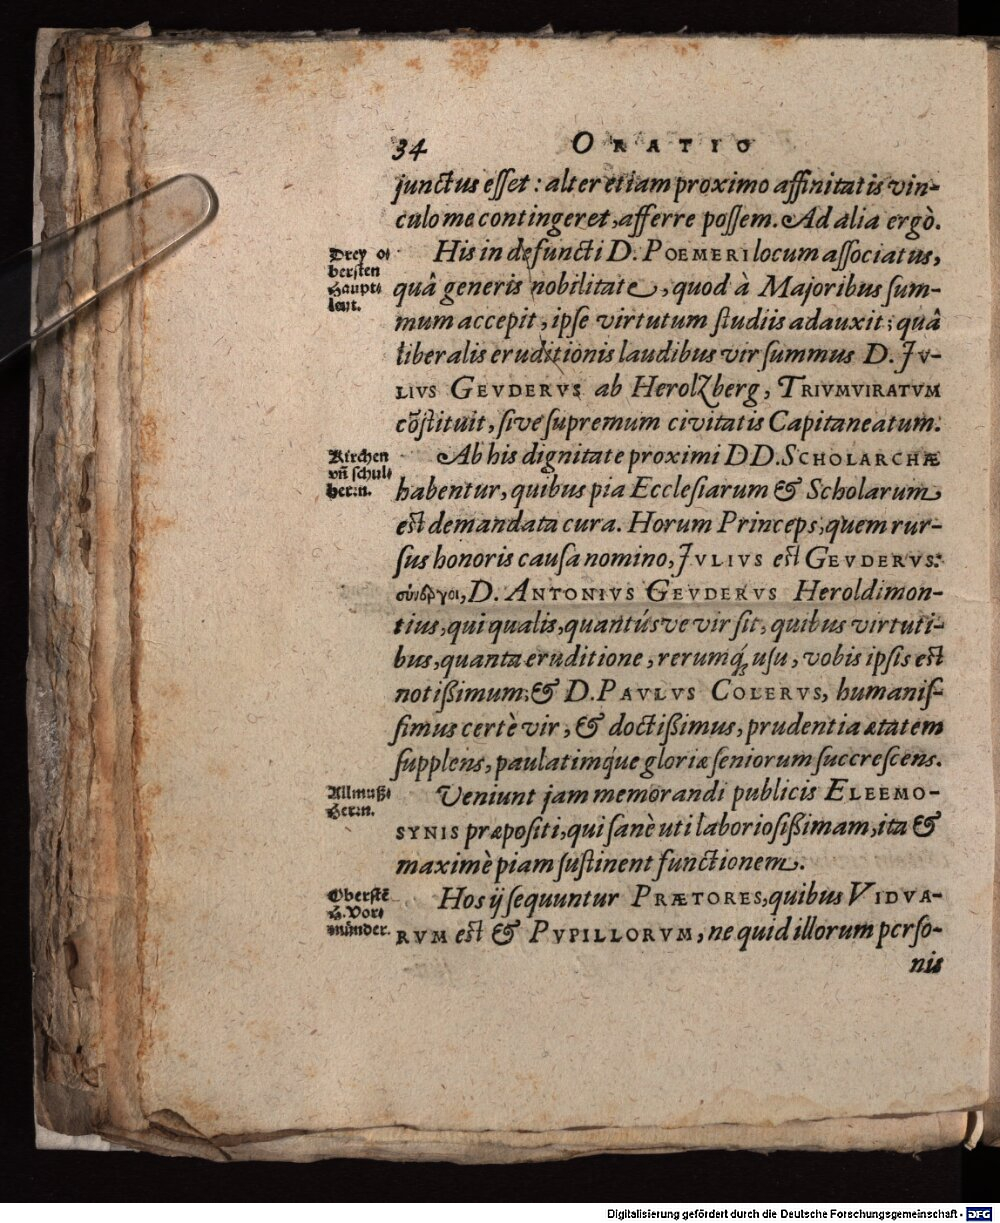 34 ORATIO
junctus eſſet: alter etiam proximo affinitatis vin-
culo me contingeret, afferre poſſem. Ad alia ergò.
Drey o-
berſten
Haupt-
leut.
His in defuncti D. POEMERI locum aſſociatus,
quâ generis nobilitate, quod à Majoribus ſum-
mum accepit, ipſe virtutum ſtudiis adauxit; quâ
liberalis eruditionis laudibus vir ſummus D. JV-
LIVS GEVDERVS ab Herolzberg, TRIVMVIRATVM
cõſtituit, ſive ſupremum civitatis Capitaneatum.
Kirchen
vñ ſchul-
herrn.
Ab his dignitate proximi DD. SCHOLARCHÆ
habentur, quibus pia Eccleſiarum & Scholarum
eſt demandata cura. Horum Princeps, quem rur-
ſus honoris cauſa nomino, JVLIVS eſt GEVDERVS:
σύνεργοι, D. ANTONIVS GEVDERVS Heroldimon-
tius, qui qualis, quantúsve vir ſit, quibus virtuti-
bus, quanta eruditione, rerumq́; uſu, vobis ipſis eſt
notißimum; & D. PAVLVS COLERVS, humaniſ-
ſimus certè vir, & doctißimus, prudentia ætatem
ſupplens, paulatimq́ue gloriæ ſeniorum ſuccreſcens.
Allmuß-
Herrn.
Veniunt jam memorandi publicis ELEEMO-
SYNIS præpoſiti, qui ſanè uti laborioſißimam, ita &
maximè piam ſuſtinent functionem.
Oberſtē
H. Vor-
münder.
Hos ij ſequuntur PRÆTORES, quibus VIDVA-
RVM eſt & PVPILLORVM, ne quid illorum perſo-
nis
Digitalisierung gefördert durch die Deutsche Forschungsgemeinschaft - DFG